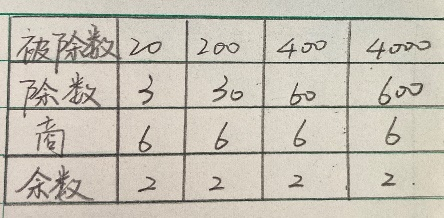 被除数 20 200 400 4000
除数 3 30 60 600
商 6 6 6 6
余数 2 2 2 2